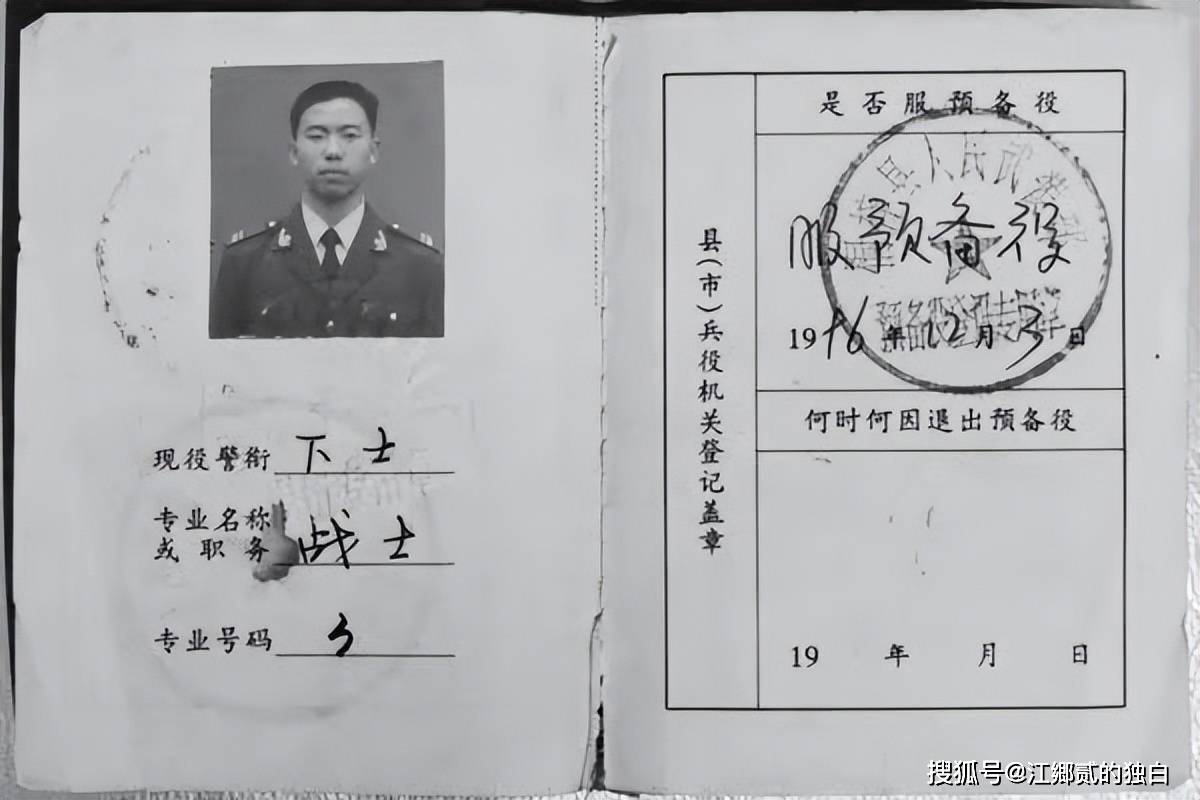 现役警衔 下士
专业名称
或职务 战士
专业号码 3
县(市)兵役机关登记盖章
是否服预备役
服预备役
1996年12月3日
何时何因退出预备役
19 年 月 日
搜狐号@江鄉贰的独白